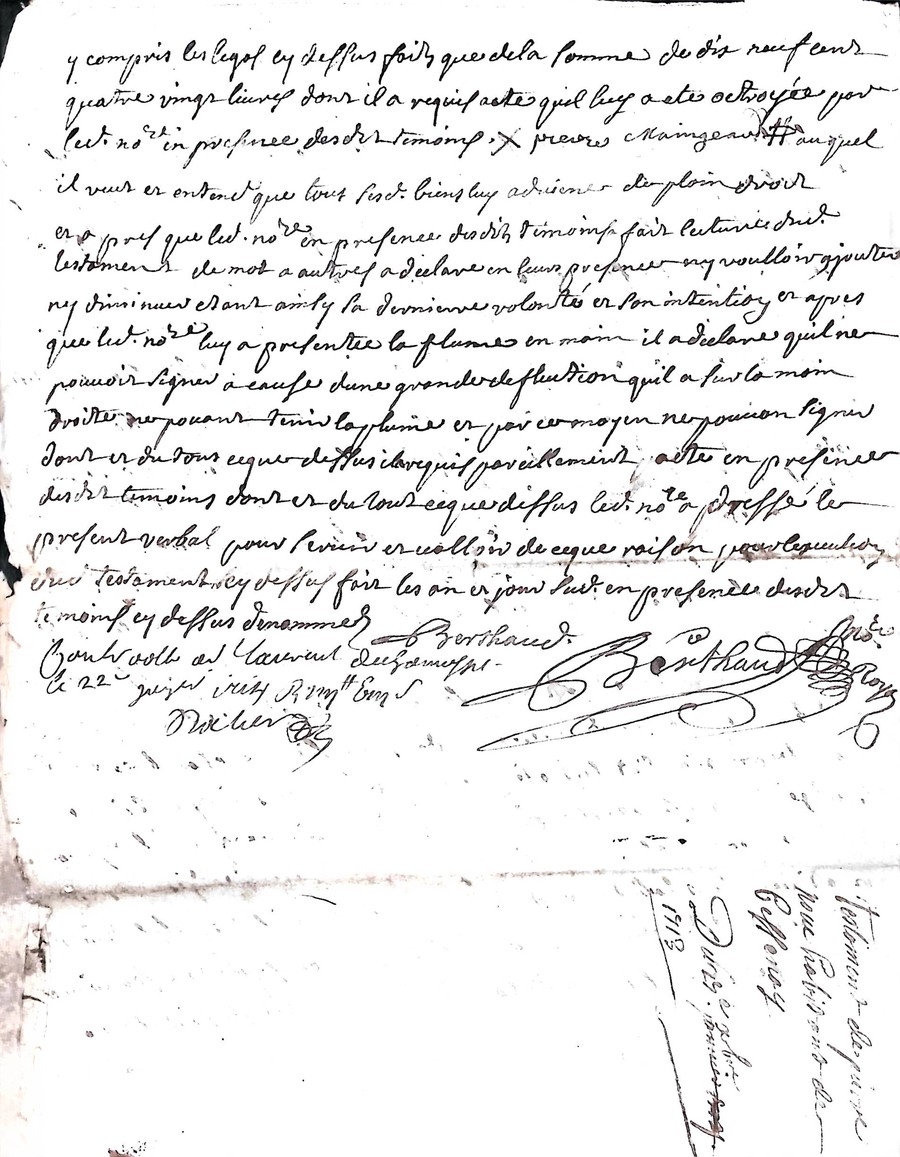 y compris les legas cy dessus faits que de la somme de dix neuf cent
quatre vingt livres dont il a requis acte quil luy a ete octroyée par
led. no.re en presence desdit temoins. X pierre Maingeaud # auquel
il veut et entend que tout sesd. biens luy advienne de plain droit
et a pres que led. no.re en presence desdits temoins fait lecture dud.
testament de mot a autres a declare en leurs presence ny voulloir ajouter
ny diminuer etant ainsy sa derniere volonté et son intention et apres
que led. no.re luy a presentée la plume en main il a declare quil ne
pouvoit signer a cause dune grande defluction quil a sur la main
droite ne pouvant tenir la plume et par ce moyen ne pouvon signer
dont et du tous ce que dessus requis pareillement acte en presence
desdit temoins dont et du tout ce que dessus led. no.re a dressé le
present verbal pour servir et valloir de ce que raison pour lexecution
dud testament cy dessus fait les an et jour sud. en presence desdit
temoins cy dessus denommes
Berthaud.
Berthaud no.re Royal
laurent
le 22e
testament de pierre
pour habitant de
Du
janvier
1713